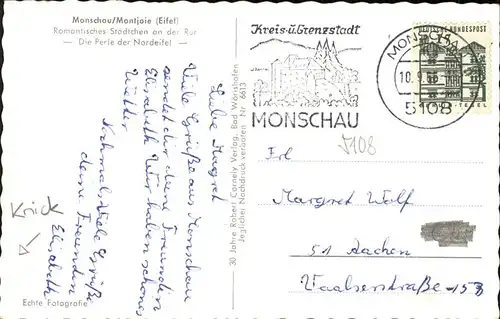 Monschau/Montjoie (Eifel)
Romantisches Städtchen an der Rur
— Die Perle der Nordeifel —
Liebe Magret
Viele Grüße aus Monschau
sendet dir deine Freundin
Elisabeth. Wir haben schöns
Wetter
Nochmals Viele Grüße
deine Freundin
Elisabeth
Knick
Echte Fotografie
30 Jahre Robert Carnely Verlag, Bad Wörishofen
Jeglicher Nachdruck verboten Nr. 6613
Kreis- u. Grenzstadt
MONSCHAU
MONSCHAU
10.9.
5108
DEUTSCHE BUNDESPOST
TEGEL
5108
Frl
Margret Wolf
51 Aachen
Vaalserstraße 153